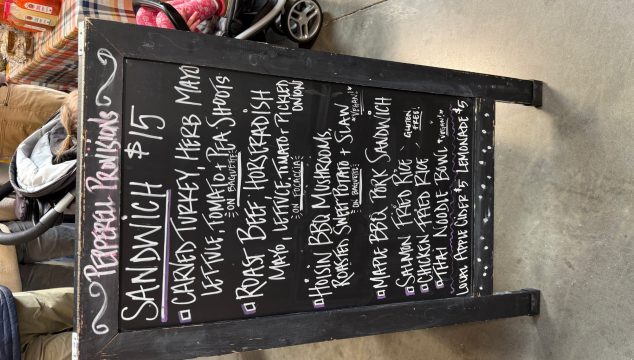 PEPPERELL PROVISIONS
SANDWICH $15
CARVED TURKEY, HERB MAYO
LETTUCE, TOMATO + PEA SHOOTS
ON BAGUETTE
ROAST BEEF HORSERADISH
MAYO, LETTUCE, TOMATO + PICKLED
ONIONS
ON FOCACCIA
HOISIN BBQ MUSHROOMS,
ROASTED SWEET POTATO + SLAW
ON BAGUETTE
VEGAN!
MAPLE BBQ PORK SANDWICH
SALMON FRIED RICE
GLUTEN
FREE!
CHICKEN FRIED RICE
THAI NOODLE BOWL VEGAN!
LOCAL APPLE CIDER $5 LEMONADE $5